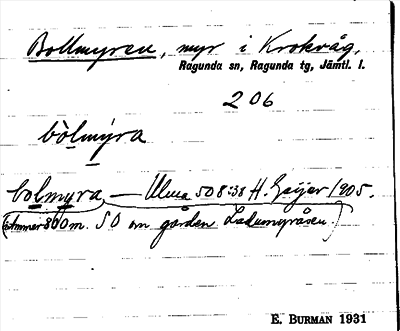 Bollmyren, myr i Krokvåg,
Ragunda sn, Ragunda tg, Jämtl. l.
206
bòlmýra
bolmyra – Ulma 508:38 H. Geijer 1905.
800 m. SO om gården
E. BURMAN 1931